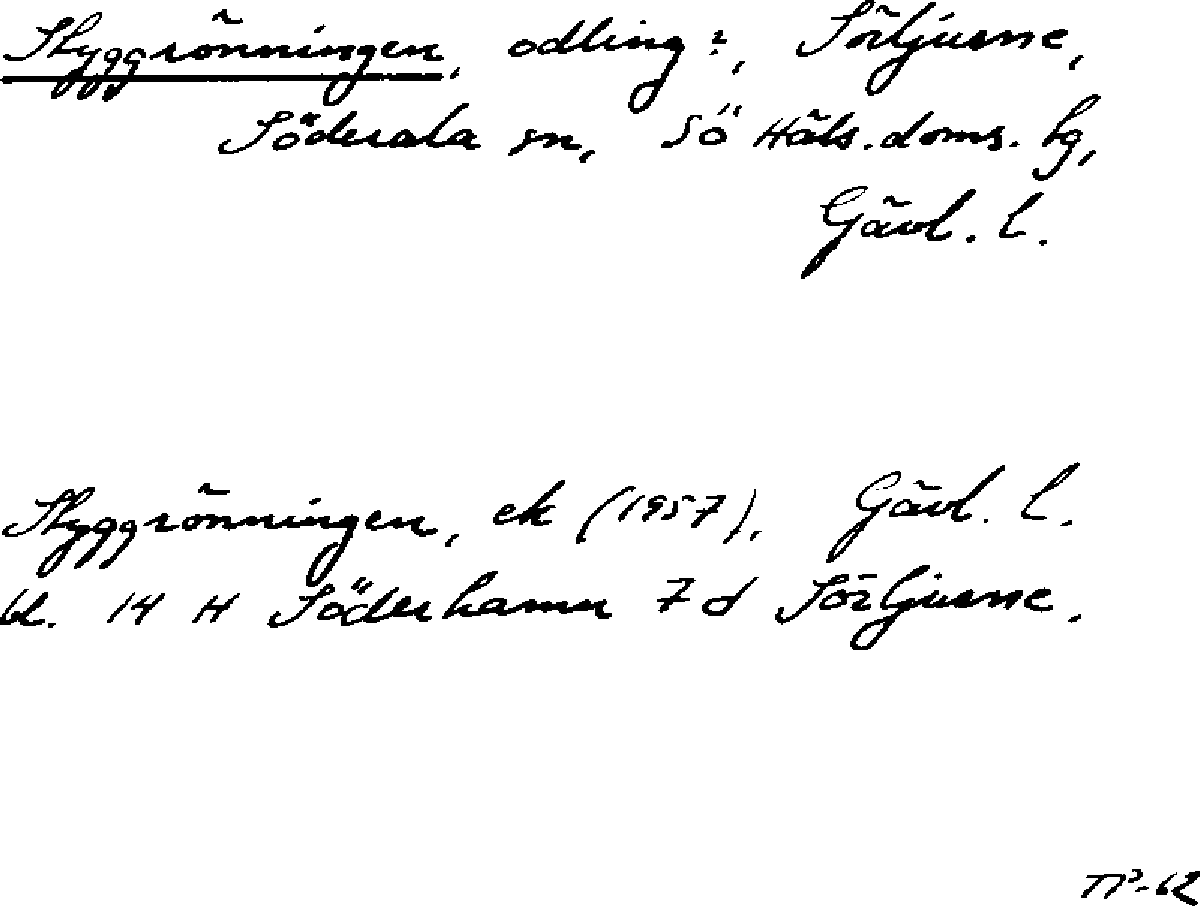 Skyggrönningen, odling?, Sörljusne,
Söderala sn, Sö Häls. doms. hg,
Gävl. l.
Skyggrönningen, ek (1957), Gävl. l.
bl. 14 H Söderhamn 7 d Sörljusne.
TP-62